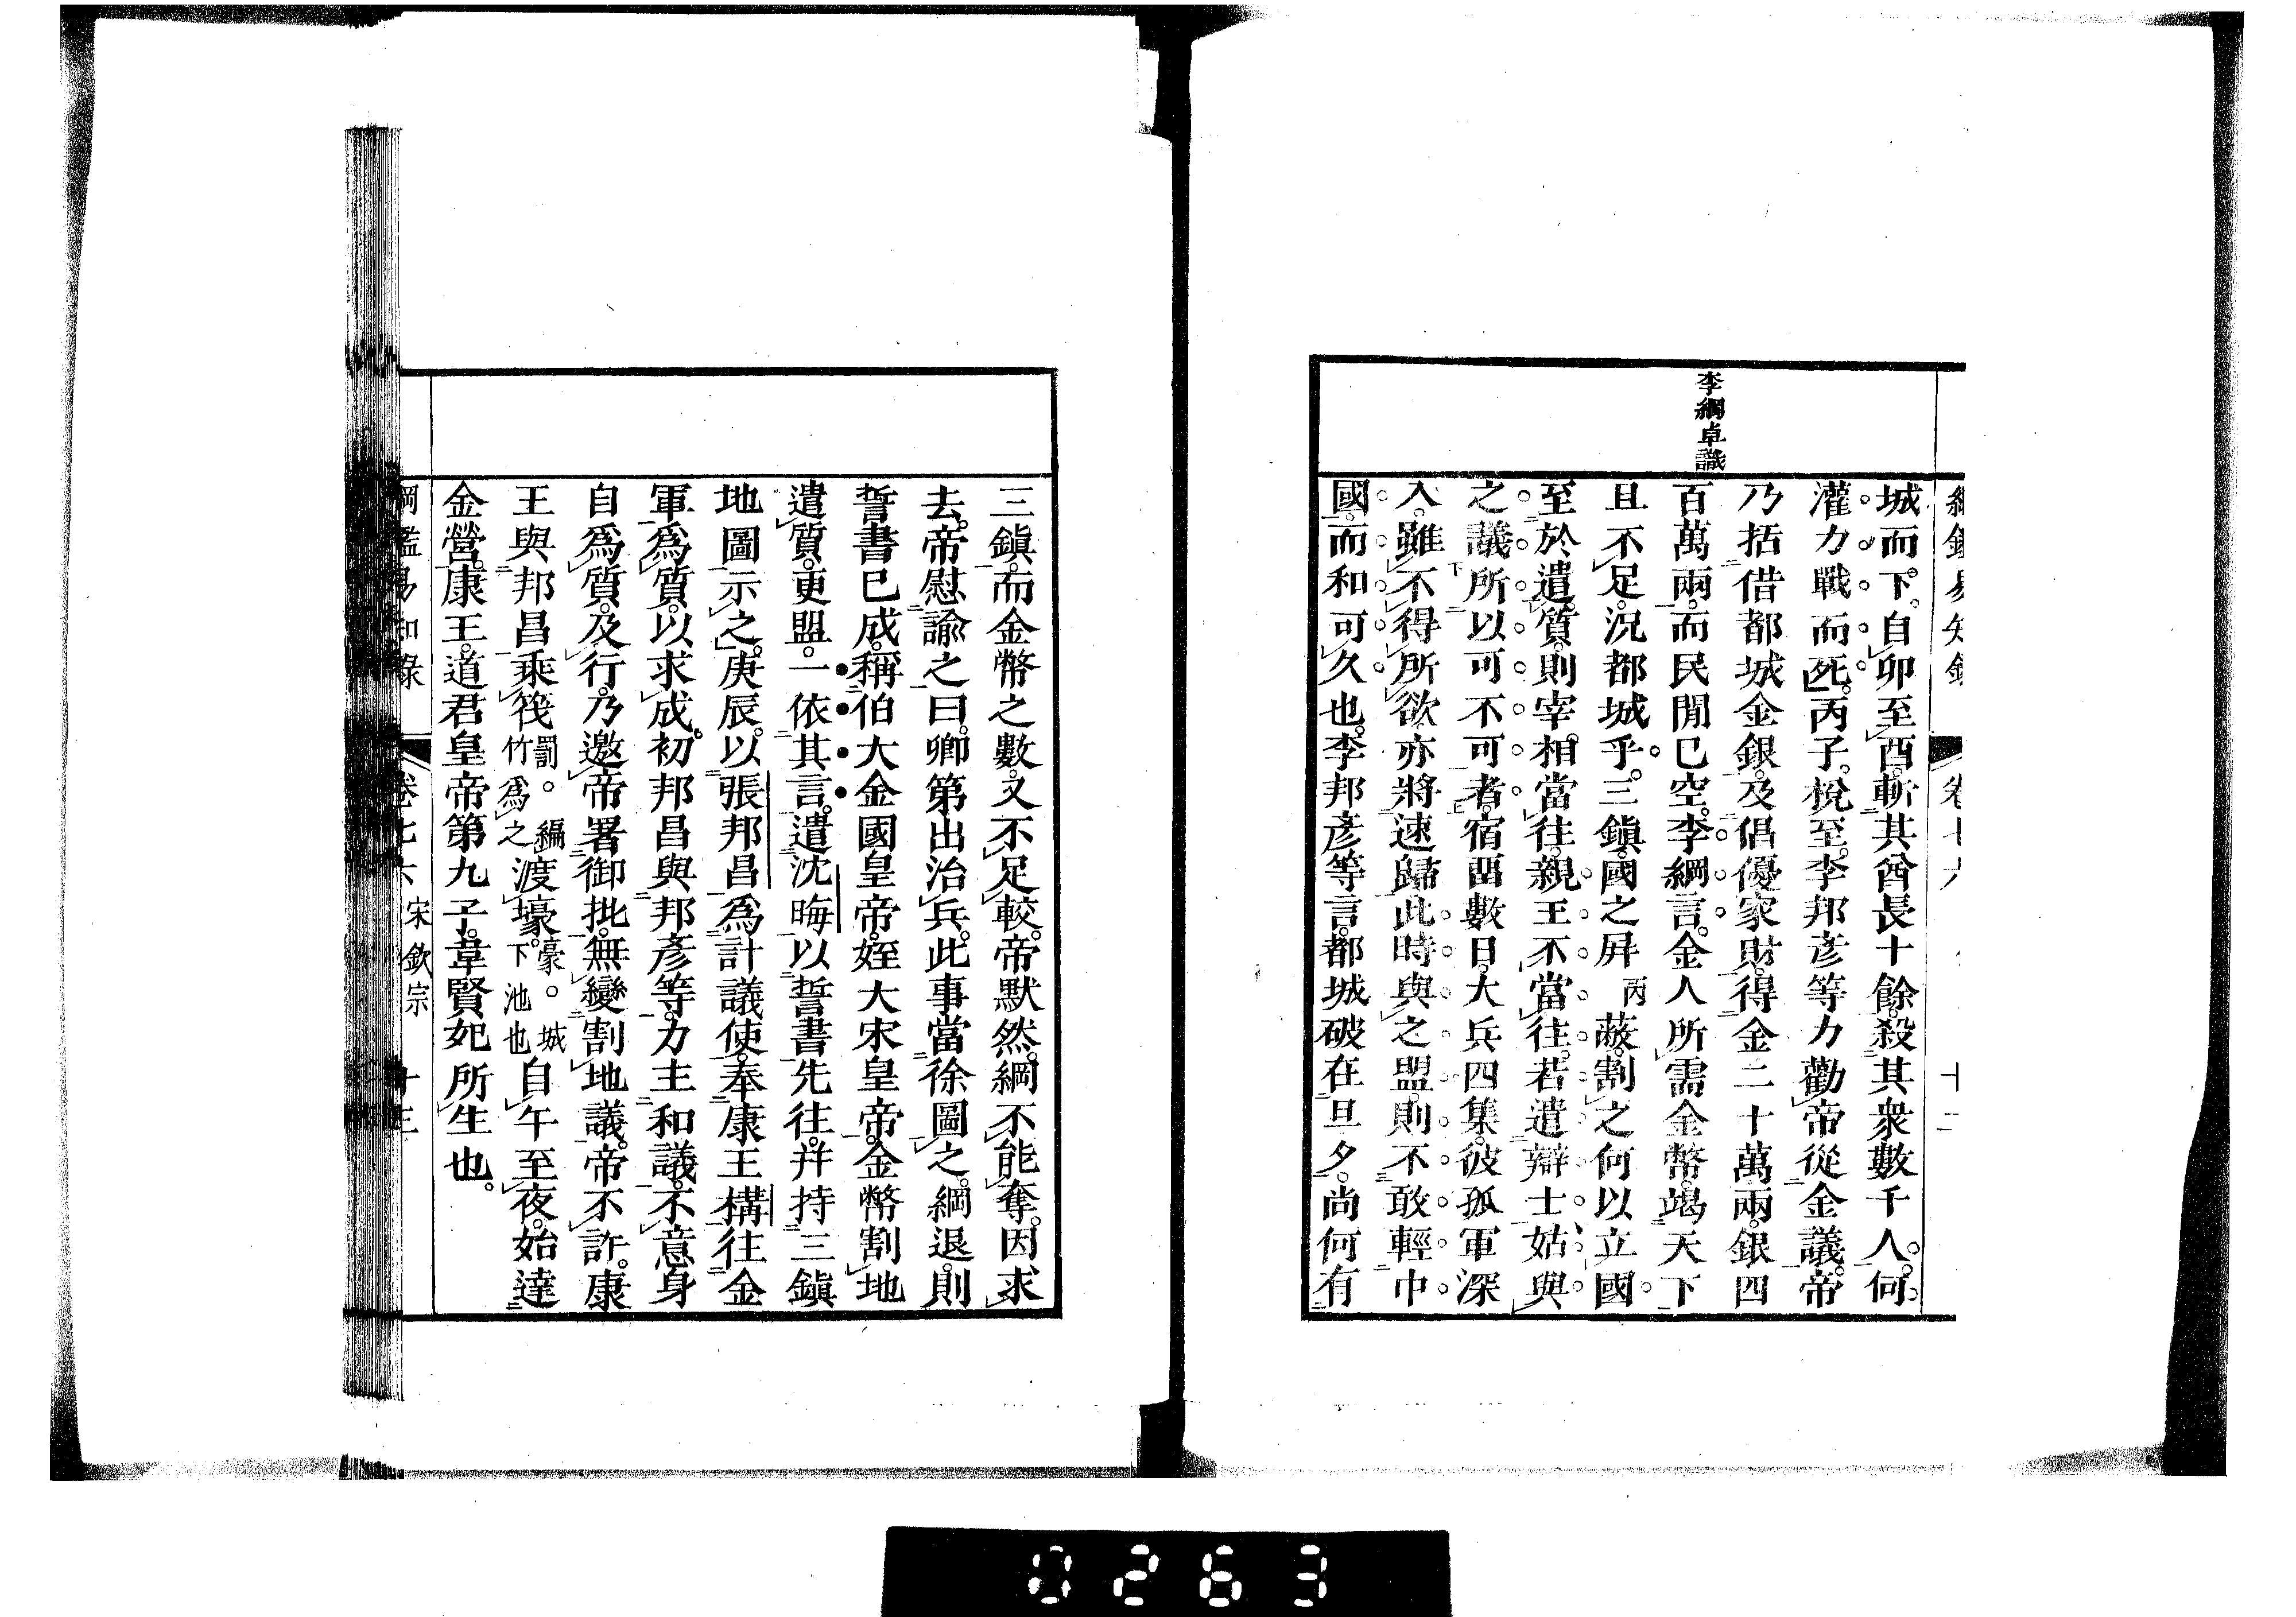 李綱卓識
城而下。自卯至酉。斬其酋長十餘。殺其衆數千人。何
灌力戰而死。丙子。梲至。李邦彥等力勸帝從金議。帝
乃括借都城金銀。及倡優家財。得金二十萬兩。銀四
百萬兩。而民閒已空。李綱言。金人所需金幣。竭天下
且不足。況都城乎。三鎭。國之屛丙蔽。割之何以立國。
至於遣質。則宰相當往。親王不當往。若遣辯士姑與
之議所以可不可者。宿畱數日。大兵四集。彼孤軍深
入。雖不得所欲。亦將速歸。此時與之盟。則不敢輕中
國。而和可久也。李邦彥等言。都城破在旦夕。尚何有
三鎭。而金幣之數。又不足較。帝默然。綱不能奪。因求
去。帝慰諭之曰。卿第出治兵。此事當徐圖之。綱退。則
誓書已成。稱伯大金國皇帝。姪大宋皇帝。金幣割地
遣質更盟。一依其言。遣沈晦以誓書先往。幷持三鎭
地圖示之。庚辰。以張邦昌爲計議使。奉康王構往金
軍爲質。以求成。初邦昌與邦彥等。力主和議。不意身
自爲質。及行。乃邀帝署御批。無變割地議。帝不許。康
王與邦昌乘筏罰。編竹爲之渡壕。豪。城下池也自午至夜。始達
金營。康王。道君皇帝第九子。韋賢妃所生也。
綱鑑易知錄 卷七六 宋欽宗 十三